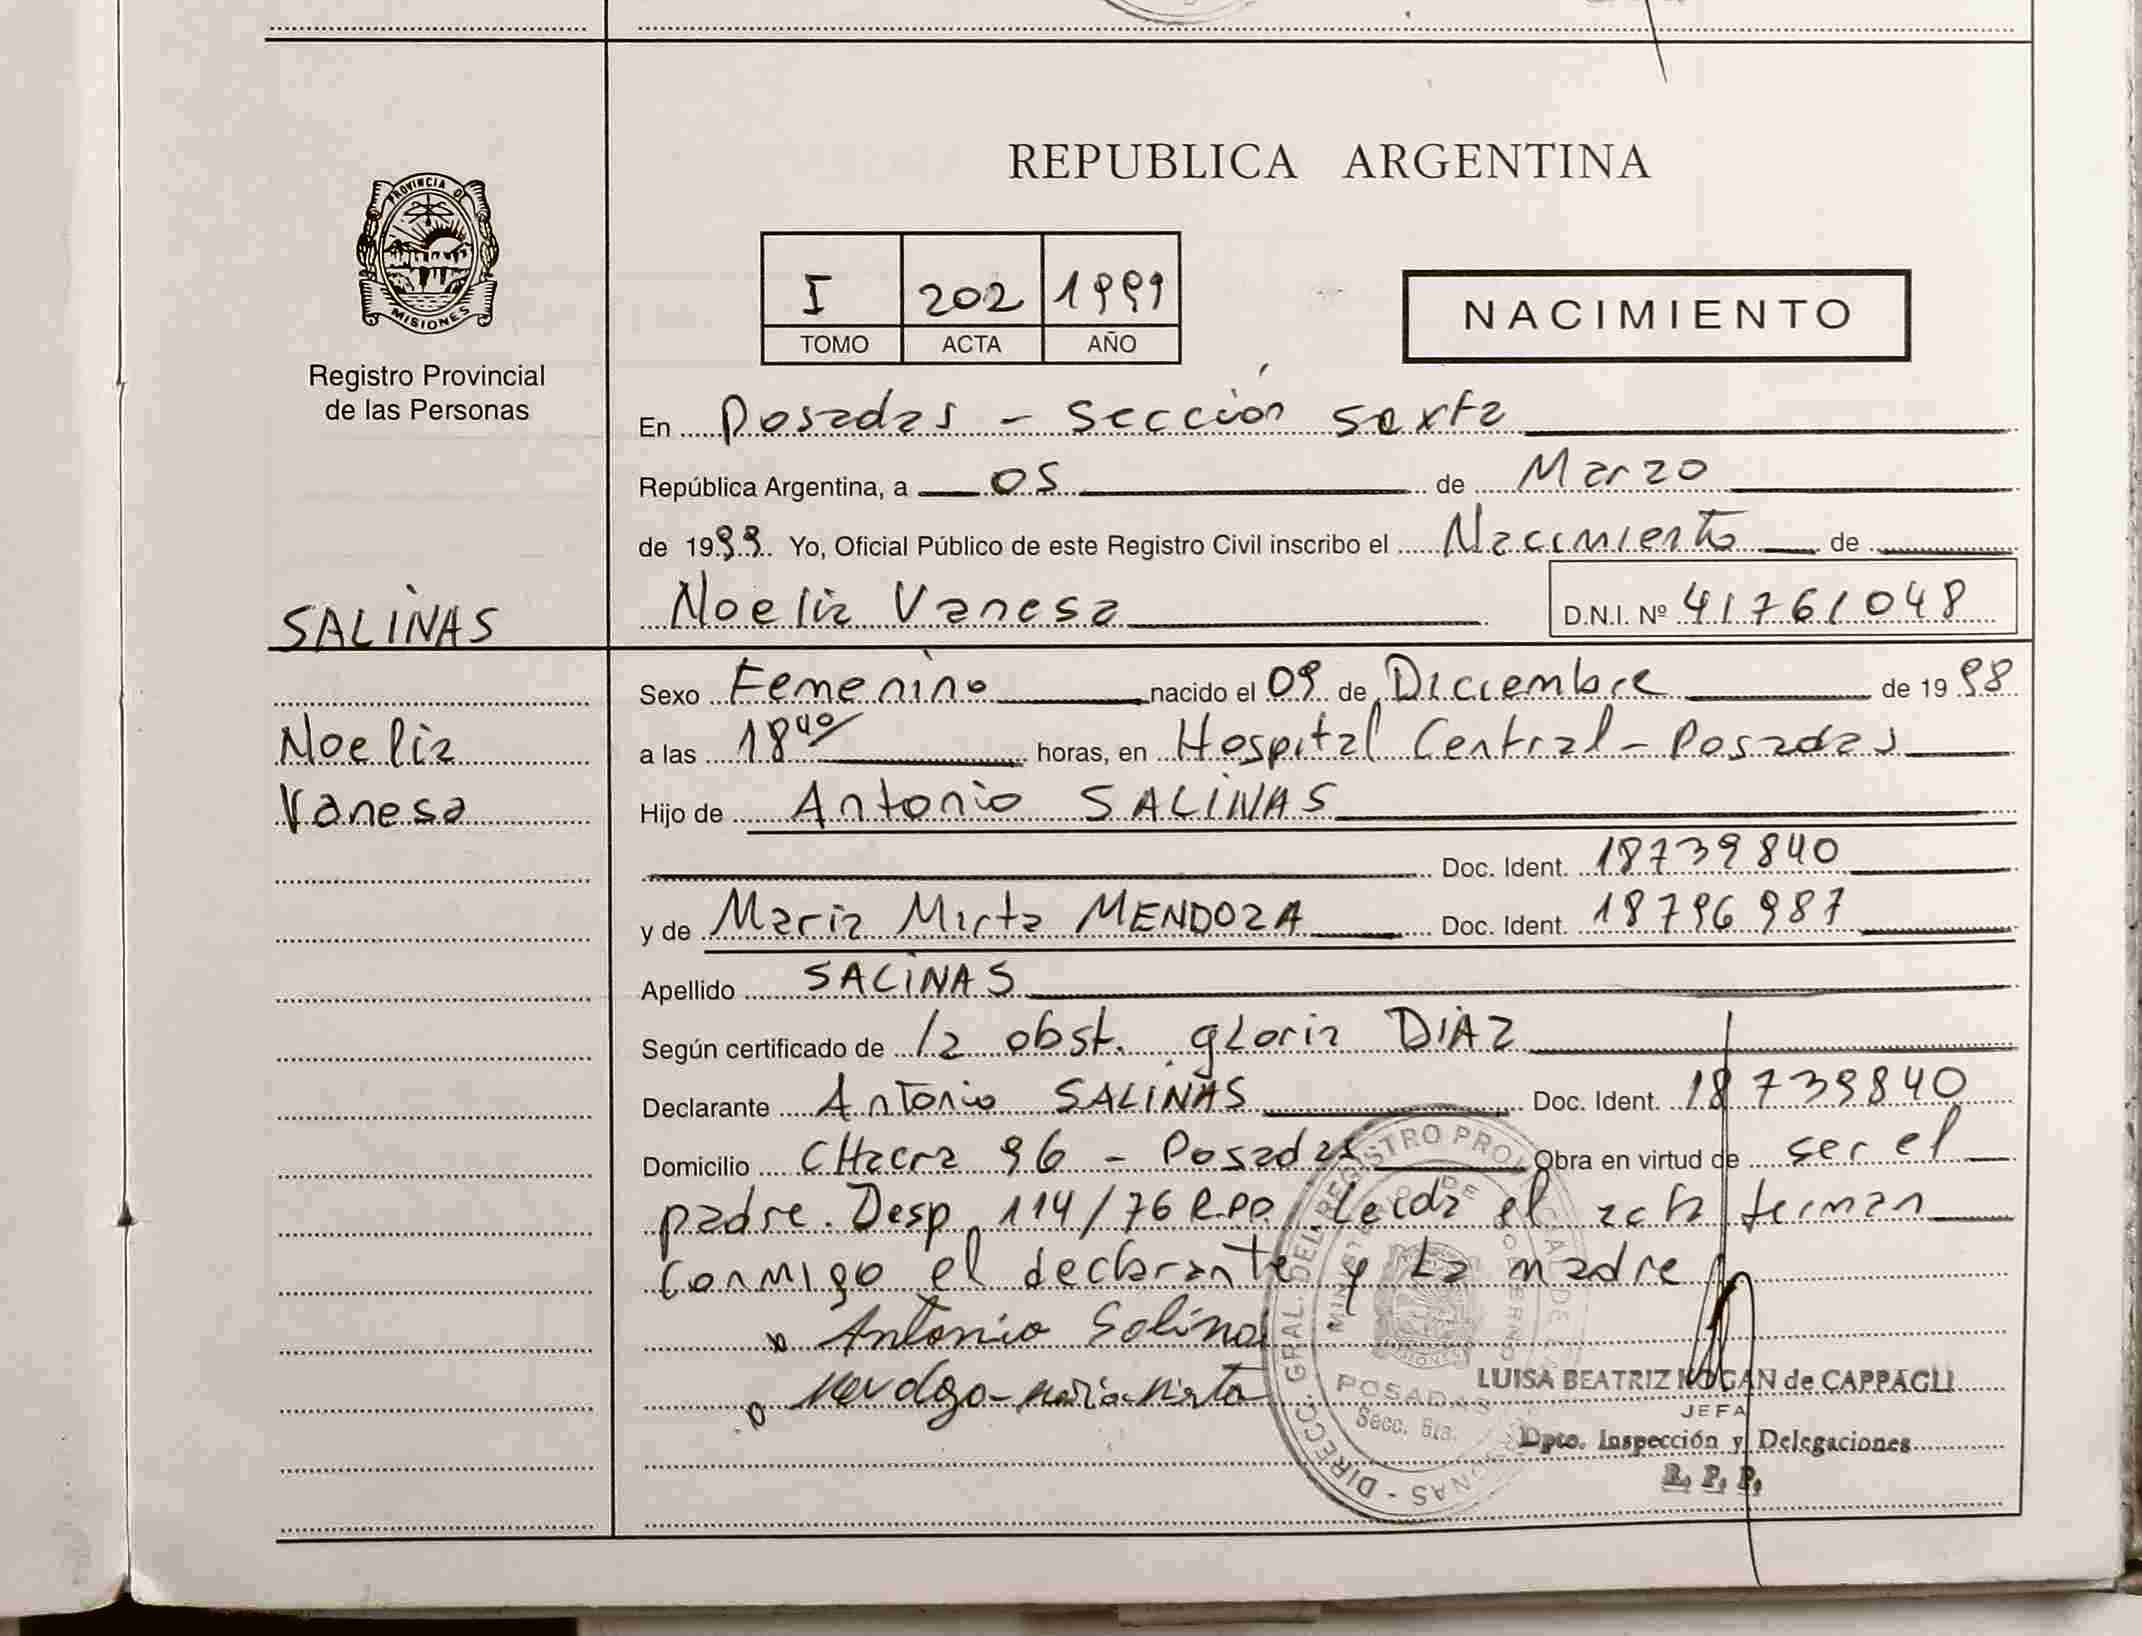 REPUBLICA ARGENTINA
PROVINCIA DE
MISIONES
Registro Provincial
de las Personas
I 202 1999
TOMO ACTA AÑO
NACIMIENTO
En Posadas - Sección sexta
República Argentina, a 05 de Marzo
de 1999. Yo, Oficial Público de este Registro Civil inscribo el Nacimiento de
SALINAS
Noelia Vanesa D.N.I. Nº 41761048
Sexo Femenino nacido el 09 de Diciembre de 1998
Noelia
a las 18 40 horas, en Hospital Central - Posadas
Vanesa
Hijo de Antonio SALINAS
Doc. Ident. 18739840
y de Maria Mirta MENDOZA Doc. Ident. 18796987
Apellido SALINAS
Según certificado de la obst. gloria DIAZ
Declarante Antonio SALINAS Doc. Ident. 18739840
Domicilio CHacra 96 - Posadas Obra en virtud de ser el
padre. Desp. 114/76 R.P.P. Leida el acta firman
conmigo el declarante y La madre
Antonio Salinas
Maria Mirta
LUISA BEATRIZ de CAPPAGLI
JEFA
Dpto. Inspección y Delegaciones
R. P. P.
DIRECC. GRAL. DEL REGISTRO
POSADAS
Secc. 6ta.